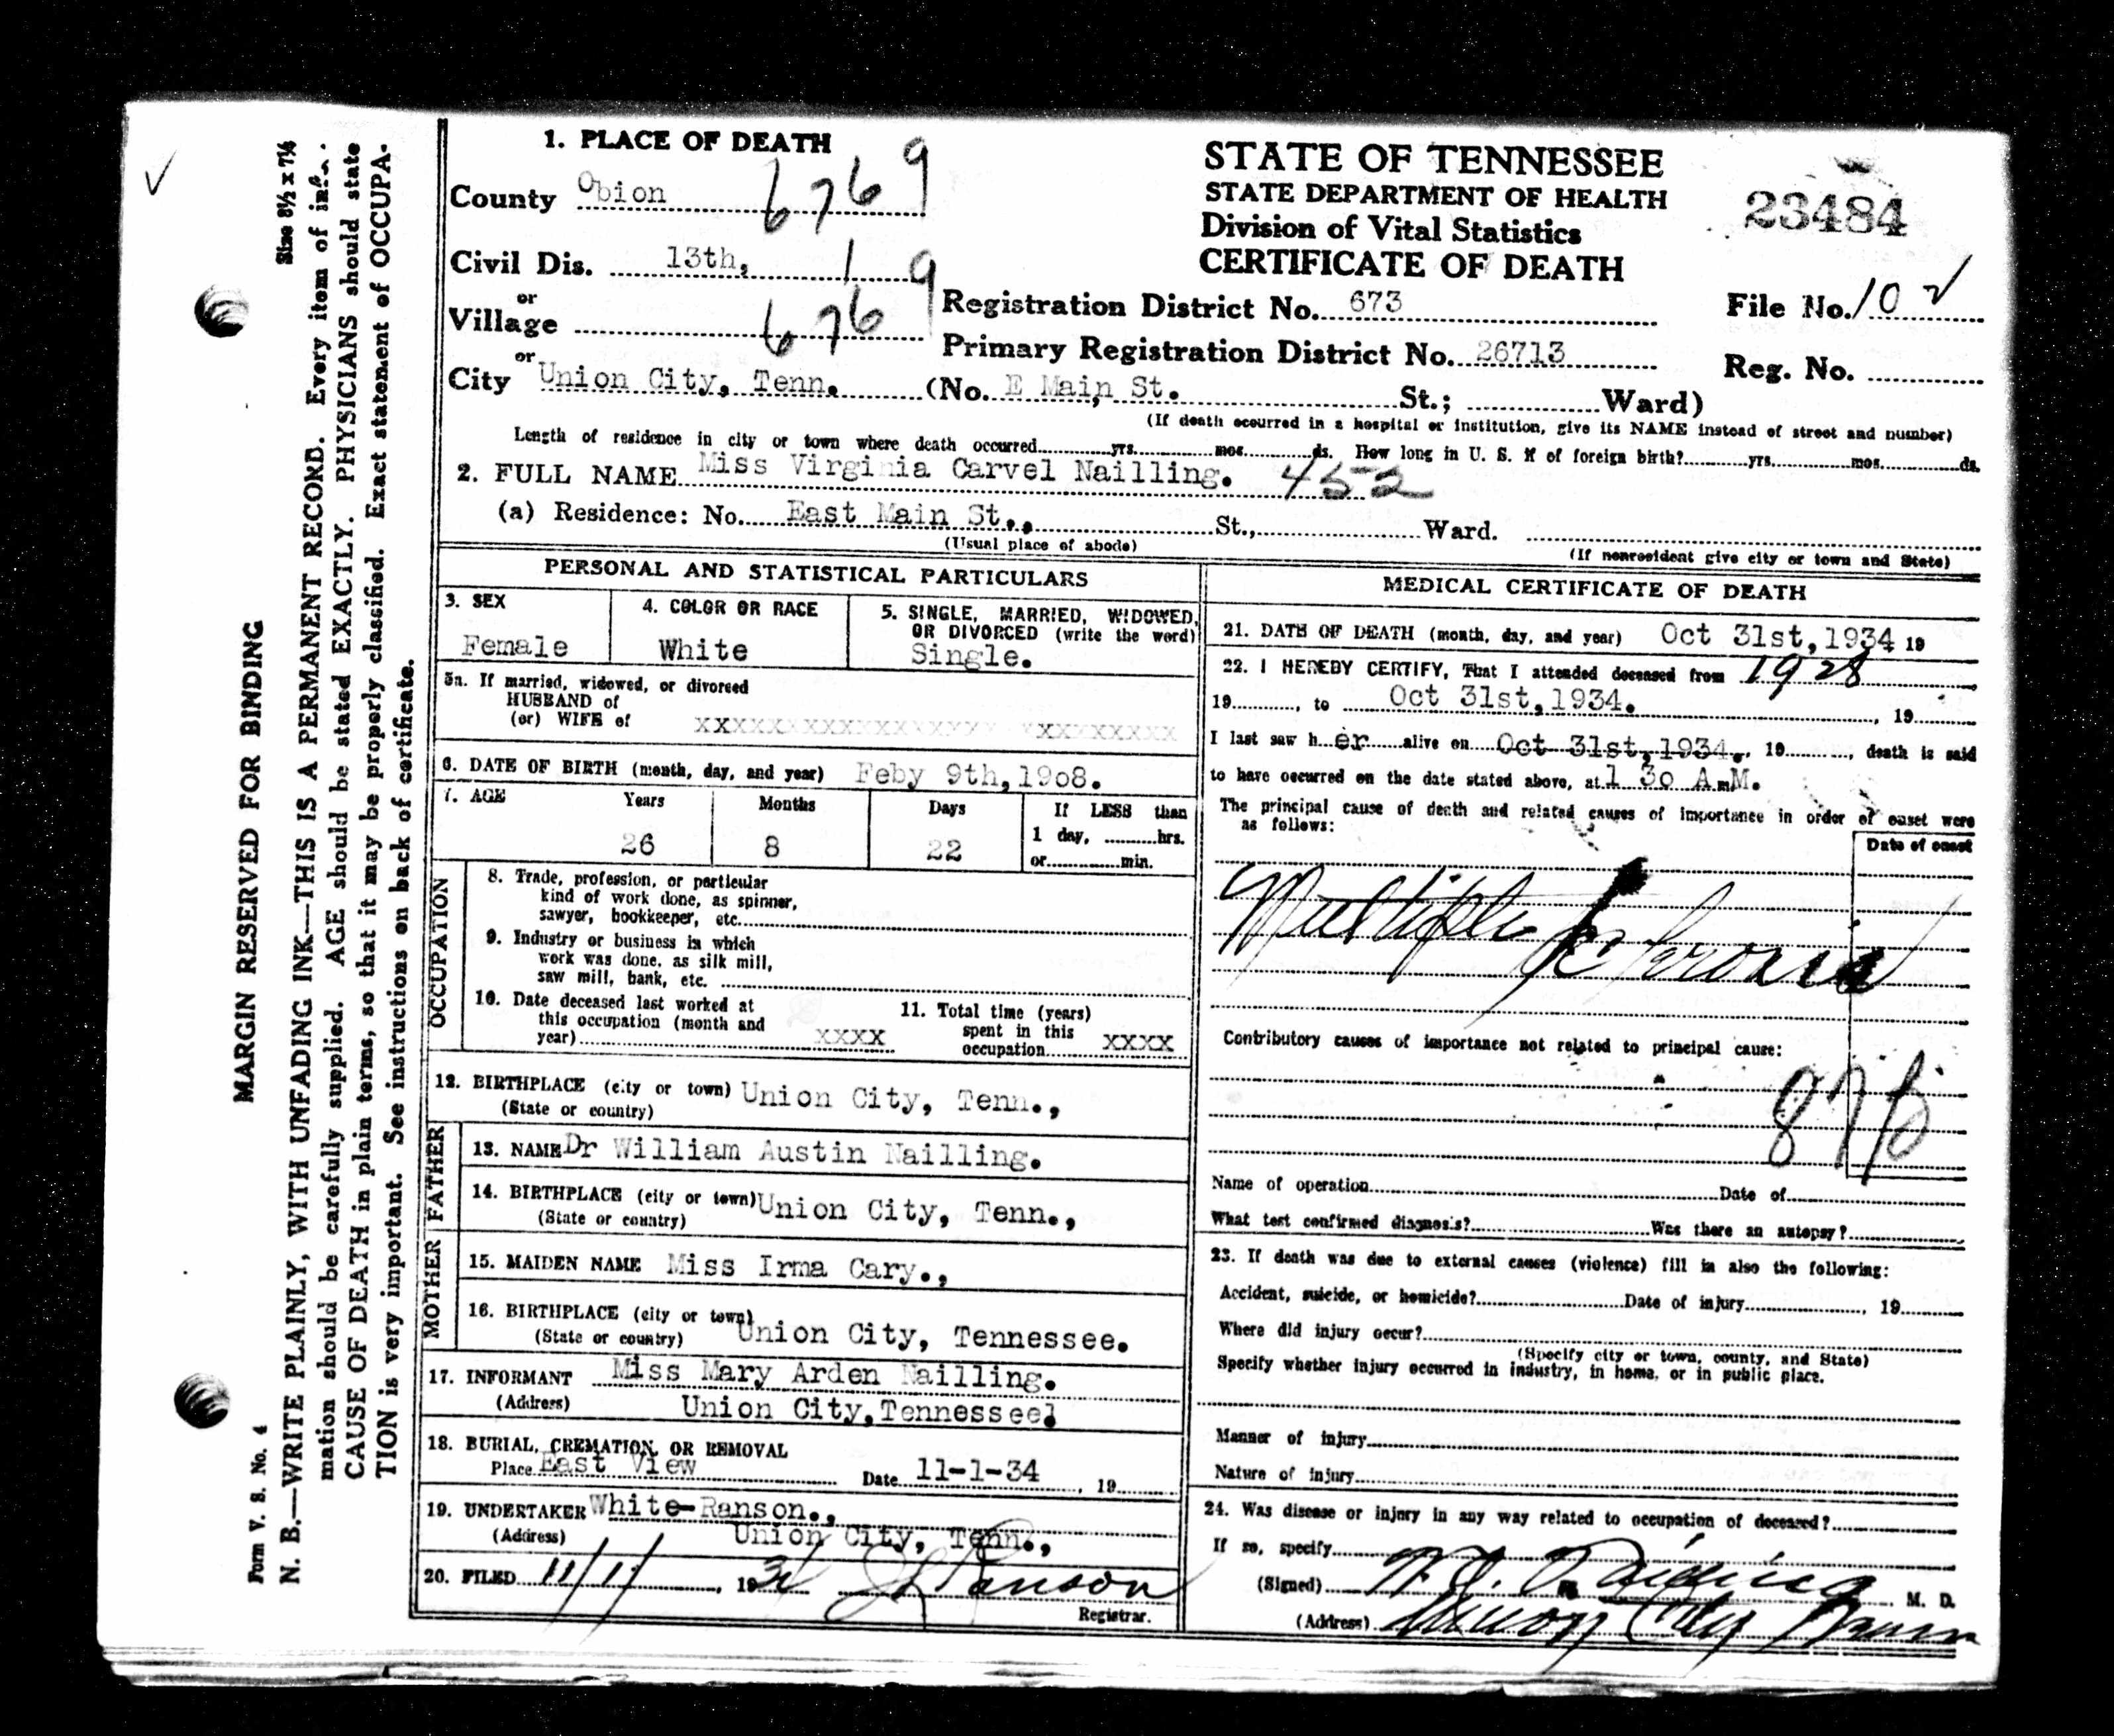 1. PLACE OF DEATH
County Obion 6769
Civil Dis. 13th, 1 9
or
Village 6769
or
City Union City, Tenn. (No. E Main, St. St.; Ward)
STATE OF TENNESSEE
STATE DEPARTMENT OF HEALTH
Division of Vital Statistics
CERTIFICATE OF DEATH
23484
Registration District No. 673
File No. 10
Primary Registration District No. 26713
Reg. No.
(If death occurred in a hospital or institution, give its NAME instead of street and number)
Length of residence in city or town where death occurred yrs. mos. ds. How long in U. S. if of foreign birth? yrs. mos. ds.
2. FULL NAME Miss Virginia Carvel Nailling. 452
(a) Residence: No. East Main St., St., Ward.
(Usual place of abode)
(If nonresident give city or town and State)
PERSONAL AND STATISTICAL PARTICULARS
3. SEX
Female
4. COLOR OR RACE
White
5. SINGLE, MARRIED, WIDOWED,
OR DIVORCED (write the word)
Single.
5a. If married, widowed, or divorced
HUSBAND of
(or) WIFE of xxxxxxxxxxxxxxxxxxx xxxxxxxxx
6. DATE OF BIRTH (month, day, and year) Feby 9th,19o8.
7. AGE Years Months Days If LESS than
1 day, hrs.
or min.
26 8 22
OCCUPATION
8. Trade, profession, or particular
kind of work done, as spinner,
sawyer, bookkeeper, etc.
9. Industry or business in which
work was done, as silk mill,
saw mill, bank, etc.
10. Date deceased last worked at
this occupation (month and
year) xxxx
11. Total time (years)
spent in this
occupation xxxx
12. BIRTHPLACE (city or town) Union City, Tenn.,
(State or country)
FATHER
13. NAME Dr William Austin Nailling.
14. BIRTHPLACE (city or town) Union City, Tenn.,
(State or country)
MOTHER
15. MAIDEN NAME Miss Irma Cary.,
16. BIRTHPLACE (city or town) Union City, Tennessee.
(State or country)
17. INFORMANT Miss Mary Arden Nailling.
(Address) Union City,Tennessee.
18. BURIAL, CREMATION, OR REMOVAL
Place East View Date 11-1-34, 19
19. UNDERTAKER White-Ranson.,
(Address) Union City, Tenn.,
20. FILED 11/1/, 1934 Ranson
Registrar.
MEDICAL CERTIFICATE OF DEATH
21. DATE OF DEATH (month, day, and year) Oct 31st,1934 19
22. I HEREBY CERTIFY, That I attended deceased from 1928
19, to Oct 31st,1934., 19
I last saw her alive on Oct 31st,1934., 19, death is said
to have occurred on the date stated above, at 1 3o A.M.
The principal cause of death and related causes of importance in order of onset were
as follows:
Date of onset
Multiple Sclerosis
Contributory causes of importance not related to principal cause:
87b
Name of operation Date of
What test confirmed diagnosis? Was there an autopsy?
23. If death was due to external causes (violence) fill in also the following:
Accident, suicide, or homicide? Date of injury, 19
Where did injury occur?
(Specify city or town, county, and State)
Specify whether injury occurred in industry, in home, or in public place.
Manner of injury
Nature of injury
24. Was disease or injury in any way related to occupation of deceased?
If so, specify
(Signed) M. D.
(Address) Union City Tenn
MARGIN RESERVED FOR BINDING
Size 8½ x 7¼
N. B.—WRITE PLAINLY, WITH UNFADING INK—THIS IS A PERMANENT RECORD. Every item of infor-
mation should be carefully supplied. AGE should be stated EXACTLY. PHYSICIANS should state
CAUSE OF DEATH in plain terms, so that it may be properly classified. Exact statement of OCCUPA-
TION is very important. See instructions on back of certificate.
Form V. S. No. 4